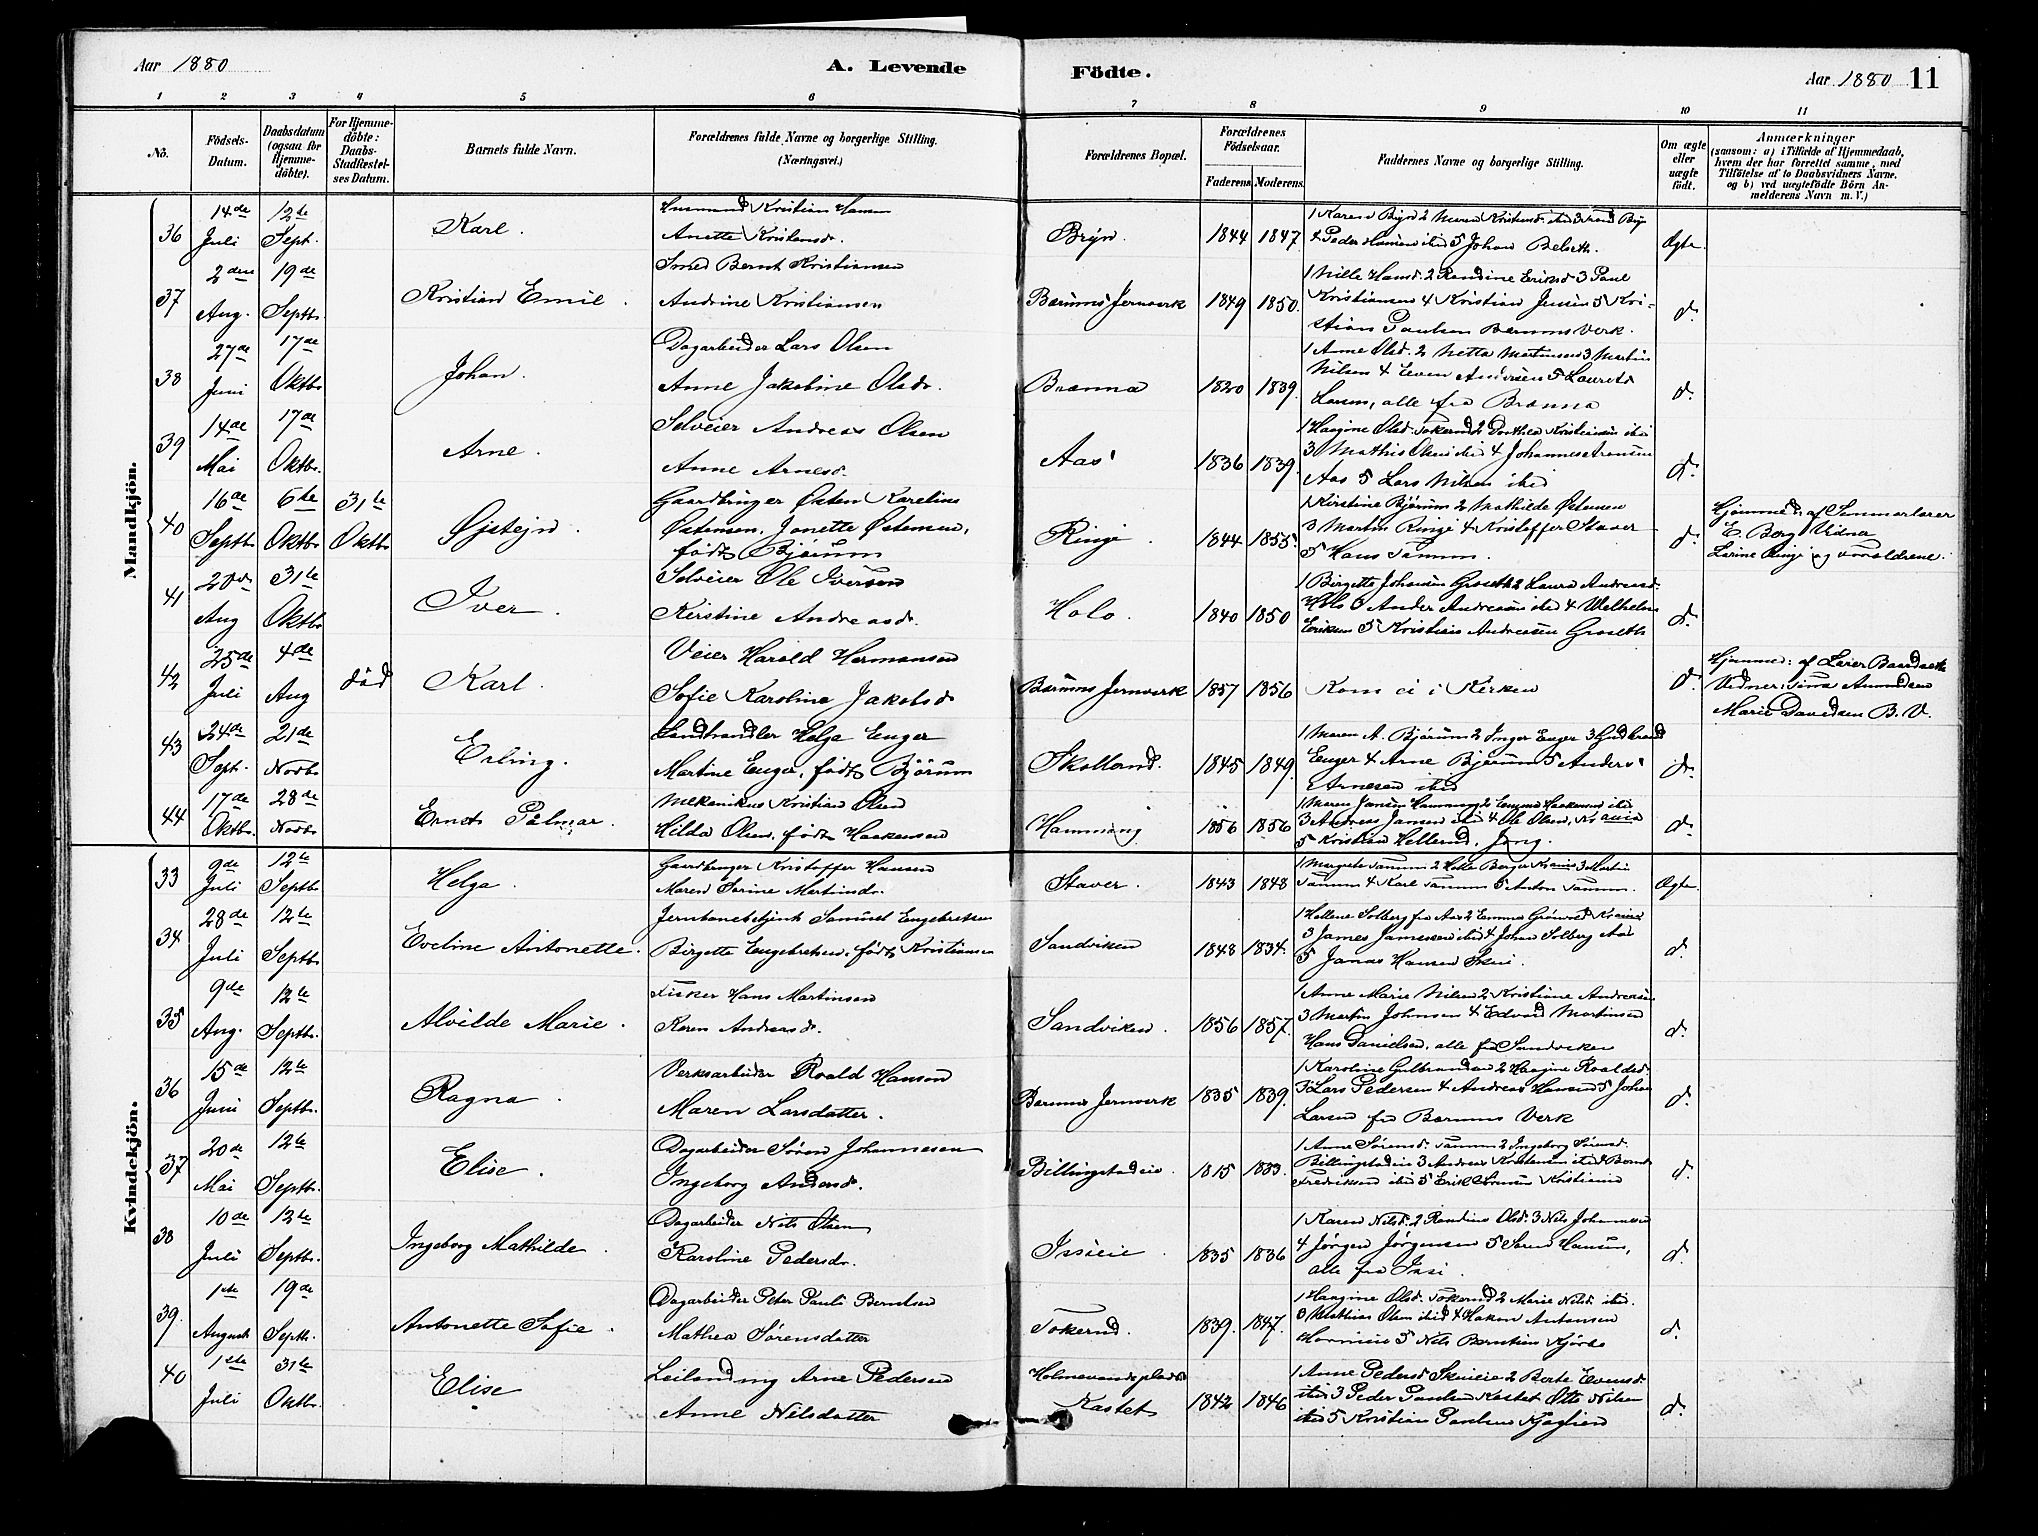 Aar 1880
A. Levende
Födte.
Aar 1880 11
1 2 3 4 5 6 7 8 9 10 11
No.
Födsels-Datum.
Daabsdatum (ogsaa for Hjemme-döbte).
For Hjemme-döbte: Daabs-Stadfæstel-ses Datum.
Barnets fulde Navn.
Forældrenes fulde Navne og borgerlige Stilling. (Næringsvei.)
Forældrenes Bopæl.
Forældrenes Födselsaar.
Faderens Moderens.
Faddernes Navne og borgerlige Stilling.
Om ægte eller uægte födt.
Anmærkninger
(saasom: a) i Tilfælde af Hjemmedaab,
hvem der har forrettet samme, med
Tilföielse af to Daabsvidners Navne.
og b) ved uægtefödte Börn An-
melderens Navn m. V.)
Mandkjön.
36 14de Juli 12te Sept. Karl. Husmand Kristian Hansen
Anette Kristensdr. Bryn. 1844 1847. 1 Karen Bryn 2 Maren
4 Peder Hansen ibid 5 Johan Belseth. Ægte
37 2den Aug. 19de Septbr. Kristian Emil. Smed Bernt Kristiansen
Andrine Kristiansen Bærums Jernverk 1849 1850. 1 Nille Hansd. 2 Randine Eriksd 3 Paul
Kristiansen 4 Kristian Jensen 5 Kri-
stian Paulsen Bærums Verk. d.
38 27de Juni 17de Oktbr. Johan. Dagarbeider Lars Olsen
Anne Jakobine Olsdr. Brænna 1820 1839. 1 Anne Olsd. 2 Netta Martinsen 3 Martin
Nilsen 4 Even Andersen 5 Laurits
Larsen, alle fra Brænna d.
39 14de Mai 17de Oktbr. Arne. Selveier Andreas Olsen
Anne Arnesd. Aas 1836 1839. 1 Haagine Olsd. Tokerud 2 Dorthea Kristiansen ibid
3 Mathis Olsen ibid 4 Johannes Arnesen
Aas 5 Lars Nilsen ibid d.
40 16de Septbr 6te Oktbr 31te Oktbr Øjstejn. Gaardbruger Østen Karelius
Østensen, Janette Østensen,
født Bjørum Ringi. 1844 1855. 1 Kirstine Bjørum 2 Mathilde Østensen
3 Martin Ringi 4 Kristoffer Staver
5 Hans Tanum. d. Hjemmed: af
E. Berg Vidne
Larine Ringi og Forældrene.
41 20de Aug 31te Oktbr. Iver. Selveier Ole Iversen
Kirstine Andreasdr. Holo. 1840 1850 1 Birgitte Johansen Groseth 2 Laura Andreasd.
Holo 3 Ander Andreasen ibid 4 Wilhelm
Eriksen 5 Kristian Andreasen Groseth d.
42 25de Juli 4de Aug død Karl. Veier Harald Hermansen
Sofie Karoline Jakobsd Bærums Jernverk 1857 1856 Kom ei i Kirken d. Hjemmed: af Lærer Baardseth
Vidner: Tina Amundsen
Marie Davidsen B. V.
43 24de Sept. 21de Novbr Erling. Landhandler Helge Enger
Martine Enger, født Bjørum Skolland. 1845 1849. 1 Maren A. Bjørum 2 Inger Enger 3 Gudbrand
Enger 4 Arne Bjørum 5 Anders
Arnesen ibid d.
44 17de Oktbr. 28de Novbr Ernst Palmar. Mekanikus Kristian Olsen
Hilda Olsen, født Haakensen Hammang 1856 1856 1 Maren Jansen Hammang 2 Emma Haakensen ibid
3 Andreas Jansen ibid 4 Ole Olsen,
5 Kristian Hellerud, Jong. d.
Kvindekjön.
33 9de Juli 12te Septbr Helga. Gaardbruger Kristoffer Hansen
Maren Sorine Martinsdr. Staver. 1843 1848 1 Margrete Tanum 2 Helle Berger 3 Martin
Tanum 4 Karl Tanum 5 Anton Tanum. Ægte.
34 28de Juli 12te Septbr Eveline Antonette. Samuel Engebretsen
Birgitte Engebretsen, født Kristiansen Sandviken 1848 1834. 1 Hellene Solberg fra Aas 2 Emma
3 James Jamesen ibid 4 Johan Solberg Aas
5 Jonas Hansen Skui. d.
35 9de Aug. 12te Septbr. Alvilde Marie. Fisker Hans Martinsen
Karen Andreasdr. Sandviken. 1856 1857. 1 Anne Marie Nilsen 2 Kristiane Andreasen
3 Martin Johnsen 4 Edvard Martinsen
Hans Danielsen, alle fra Sandviken d.
36 15de Juni 12te Septbr. Ragna. Verksarbeider Roald Hansen
Maren Larsdatter. Bærums Jernverk 1835 1839. 1 Karoline Gulbrandsen 2 Haagine Roaldsd.
3 Lars Pedersen 4 Andreas Hansen 5 Johan
Larsen fra Bærums Verk d.
37 20de Mai 12te Septbr. Elise. Dagarbeider Søren Johannesen
Ingeborg Andersd. Billingstadeie. 1815 1833. 1 Anne Sørensd. Tanum 2 Ingeborg Sørensd.
Billingstadeie 3 Andreas Kristensen ibid Bernt
Fredriksen ibid 5 Erik d.
38 10de Juli 12te Septbr. Ingeborg Mathilde. Dagarbeider Nils Olsen
Karoline Pedersdr. Issieie. 1835 1836 1 Karen Nilsd. 2 Randine Olsd. 3 Nils Johannesen
4 Jørgen Jørgensen 5 Søren Hansen,
alle fra Issi. d.
39. 1ste August 19de Septbr. Antonette Sofie. Dagarbeider Peter Pauli Berntsen
Mathea Sørensdatter Tokerud. 1839. 1847. 1 Haagine Olsd. Tokerud 2 Marie Nilsd. ibid.
3 Mathias Olsen ibid 4 Hakon Antonsen
5 Nils Berntsen Kjørbo d.
40 1ste Juli 31te Oktbr. Elise Leilænding Arne Pedersen
Anne Nilsdatter Holmevandspladsen
Kastet 1842 1846 1 Anne Pedersd Skuieie 2 Berte Evensd
ibid 3 Peder Paulsen Kastet Otto Nilsen
ibid 5 Kristian Paulsen d.